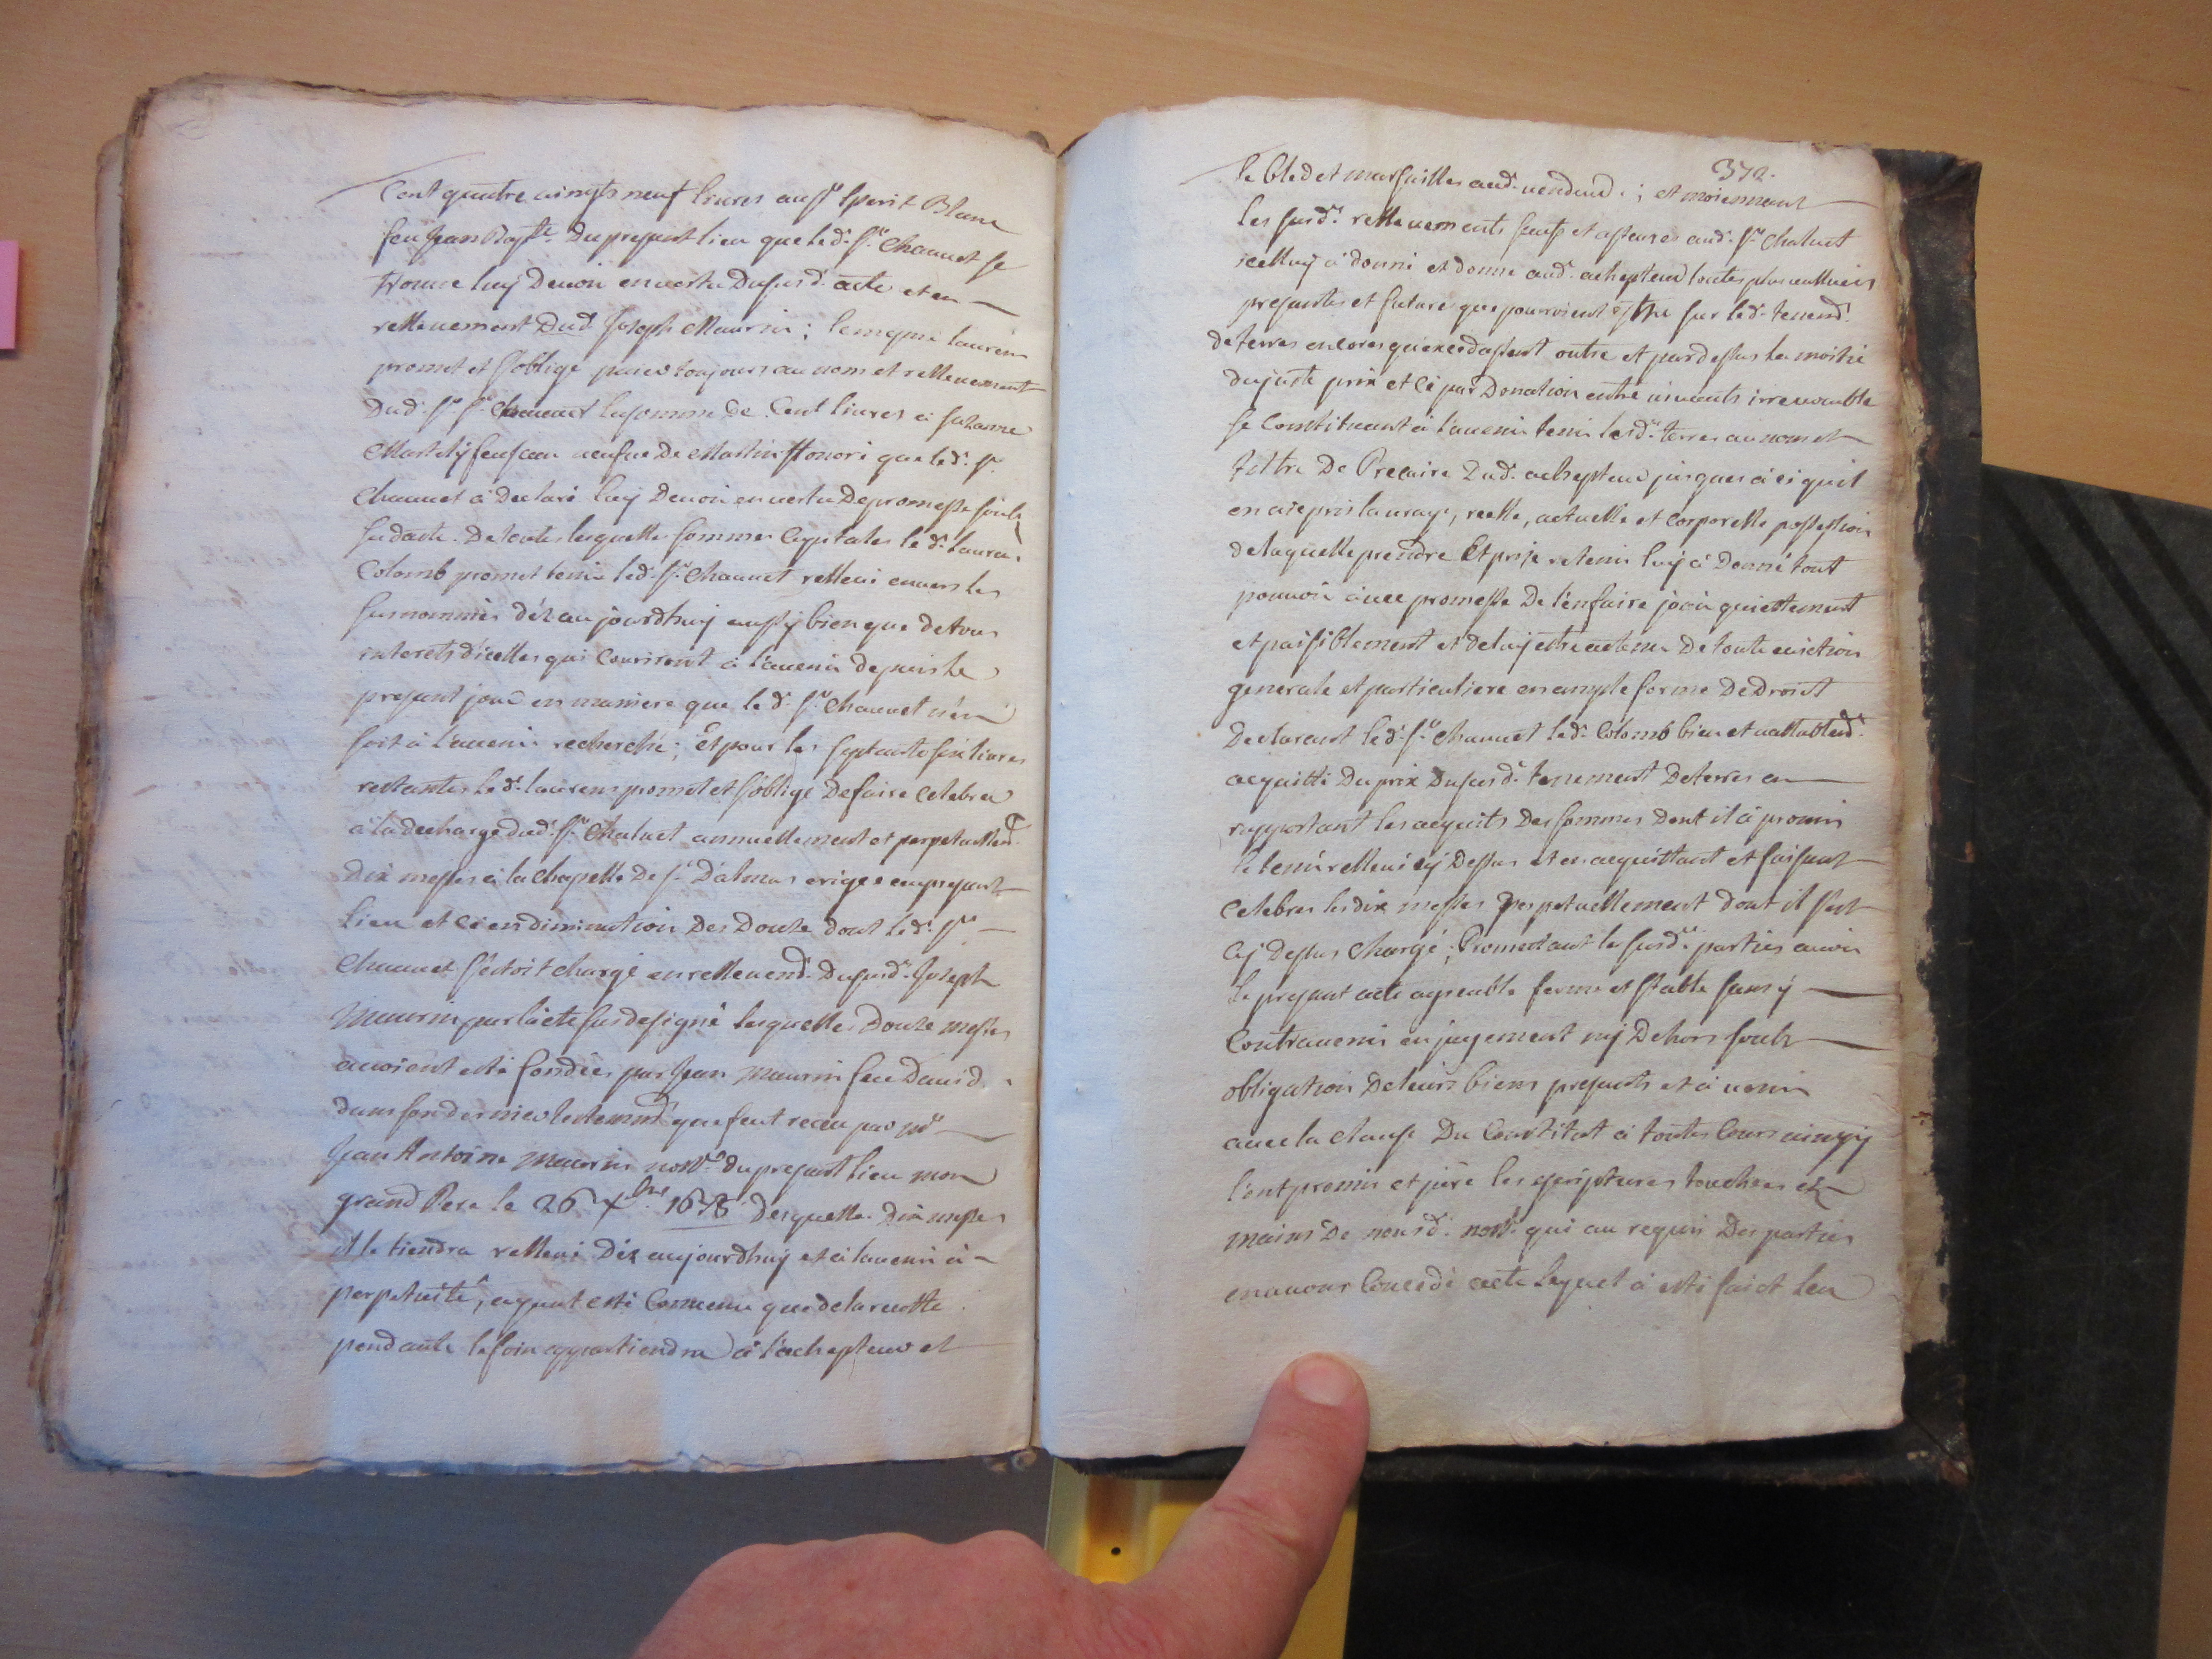 Cent quatre vingts neuf livres au Sr Esperit Blanc
feu Jean Bapte. du presant lieu que led. Sr. Chauvet se
trouve luy devoir en vertu dususd. acte et en
rellevement dud. Joseph Maurin ; lememe laurens
promet et s'oblige paier toujours au nom et rellevement
dud. Sr. Chauvet lasomme de Cent livres à Suzanne
Martely veufve de Martin Honoré que led. Sr.
Chauvet à declaré luy devoir en vertu de promesse soubs
sa date. De toutes lesquelles sommes Cappitales led. Laurens
Colomb promet tenir led. Sr. Chauvet rellevé envers les
surnommés déz aujourdhuy aussy bien que detous
interets d'icelles qui Couriront à l'avenir depuis le
presant jour en maniere que led. Sr. Chauvet n'en
soit à l'avenir recherché ; Et pour les septante six livres
restantes led. laurens promet et s'oblige defaire Celebrer
à la decharge dud. Sr. Chaluet annuellement et perpetuellemt.
Dix messes à la Chapelle de St. Dalmas erigée aupresant
lieu et Ce en diminution des Douze dont led. Sr.
Chauvet s'étoit chargé en rellevemt. dususd. Joseph
Maurin par l'acte susdesigné lesquelles Douze messes
avoient esté fondées par Jean Maurin feu David
dans son dernier testemmt. que feut receu par me.
Jean Antoine Maurin nottre. du presant lieu mon
grand Pere le 26 Xbre. 1678 desquelles Dix messes
il le tiendra rellevé déz aujourdhuy et à lavenir à
perpetuité, ayant esté Convenu que delarecolte
pendante le foin appartiendra à l'achepteur et
372.
le bled et marsailles aud. vendeur ; et moiennant
les susds. rellevements saufs et asseurés aud. Sr. Chaluet
icelluy à donné et donne aud. achepteur toutes plus vallues
presantes et future que pourroient estre sur led. tenemt.
de terres encores qu'excedassent outre et par dessus la moitié
du juste prix et Ce par Donation entre vivants irrevocable
se Constituant à l'avenir tenir lesds. terres au nom et
tiltre de Precaire dud. achepteur jusques à ce quil
en aie pris la vraye, reelle, actuelle et Corporelle possession
de laquelle prendre Et prise retenir luy à Donné tout
pouvoir avec promesse de l'en faire jouir quiettement
et paisiblement et de luy estre de toute eviction
generale et particuliere en ample forme de Droict
Declarant led. Sr. Chauvet led. Colomb bien et vallablemt.
acquitté du prix dusud. tenement deterres en
rapportant les acquits des sommes dont il à promis
le tenir rellevé cy dessus et en acquittant et faisant
Celebrer les dix messes perpetuellement dont il s'est
cy dessus Chargé ; Promettant les susdes. parties avoir
le presant acte agreable ferme et stable sans y
Contrevenir en jugement ny Dehors soubs
obligation de leurs biens presants et à venir
avec la clause du Constitut à toutes Cours ainsy
l'ont promis et juré les escriptures touchées ez
mains de nousd. nottre. qui au requis Des parties
en avons Concedé acte lequel à esté faict leu